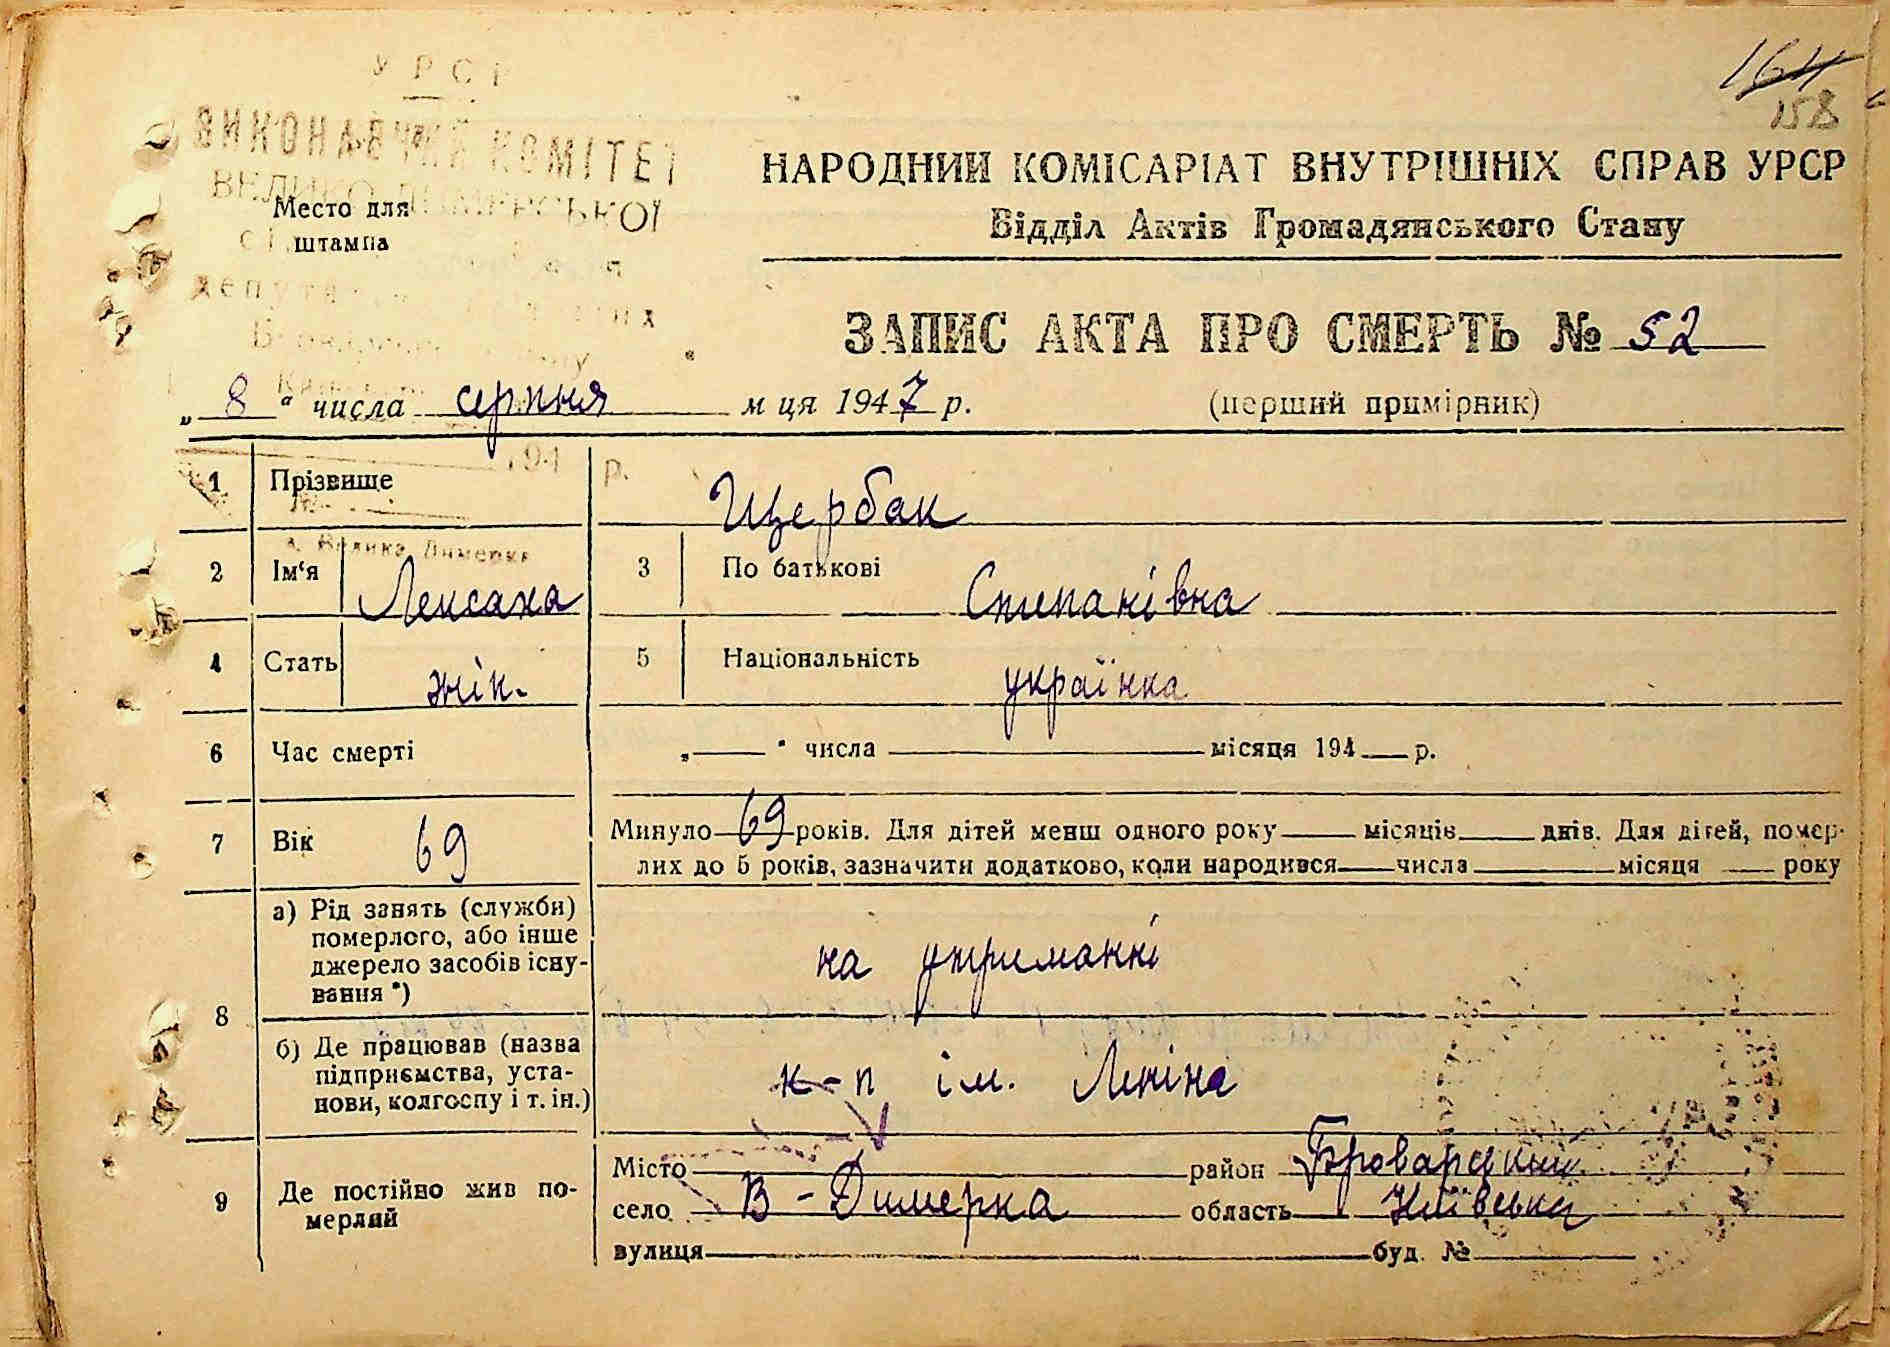 УРСР
ВИКОНАВЧИЙ КОМІТЕТ
ВЕЛИКО-ДИМЕРСЬКОЇ
Место для
штампа
164
158
НАРОДНИЙ КОМІСАРІАТ ВНУТРІШНІХ СПРАВ УРСР
Відділ Актів Громадянського Стану
ЗАПИС АКТА ПРО СМЕРТЬ № 52
„ 8 “ числа серпня м ця 1947 р.
(перший примірник)
194 р.
1 Прізвище Щербак
с. Велика Димерка
2 Ім‘я Лексаха 3 По батькові Степанівна
4 Стать жін. 5 Національність українка
6 Час смерті „ “ числа місяця 194 р.
7 Вік 69 Минуло 69 років. Для дітей менш одного року місяців днів. Для дітей, помер-
лих до 5 років, зазначити додатково, коли народився числа місяця року
8 а) Рід занять (служби)
померлого, або інше
джерело засобів існу-
вання *)
на утриманні
б) Де працював (назва
підприємства, уста-
нови, колгоспу і т. ін.)
к-п ім. Леніна
9 Де постійно жив по-
мерлий
Місто район Броварський
село В-Димерка область Київська
вулиця буд. №